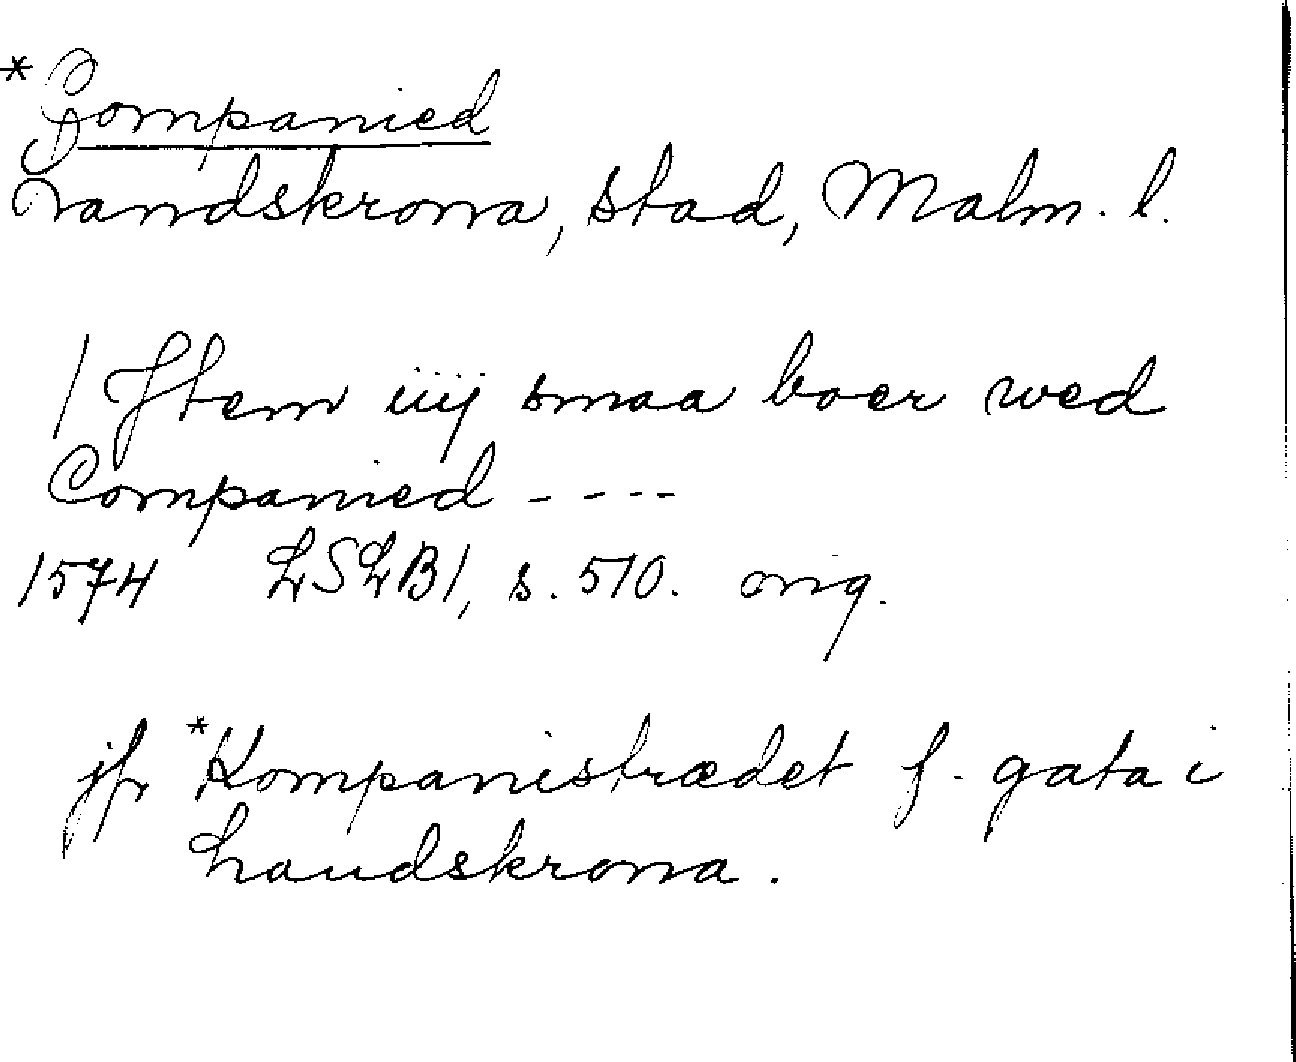 *Companied
Landskrona, stad, Malm. l.
/ Jtem iiij smaa boer wed
Companied - - - -
1574 LSLB1, s. 510. orig.
jfr *Kompanistrædet f. gata i
Landskrona.